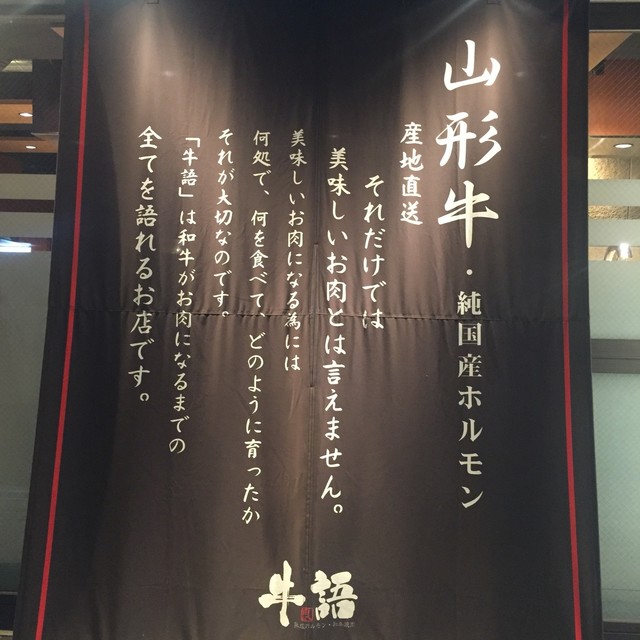 山形牛・純国産ホルモン
産地直送
それだけでは
美味しいお肉とは言えません。
美味しいお肉になる為には
何処で、何を食べて、どのように育ったか
それが大切なのです。
「牛語」は和牛がお肉になるまでの
全てを語れるお店です。
牛語